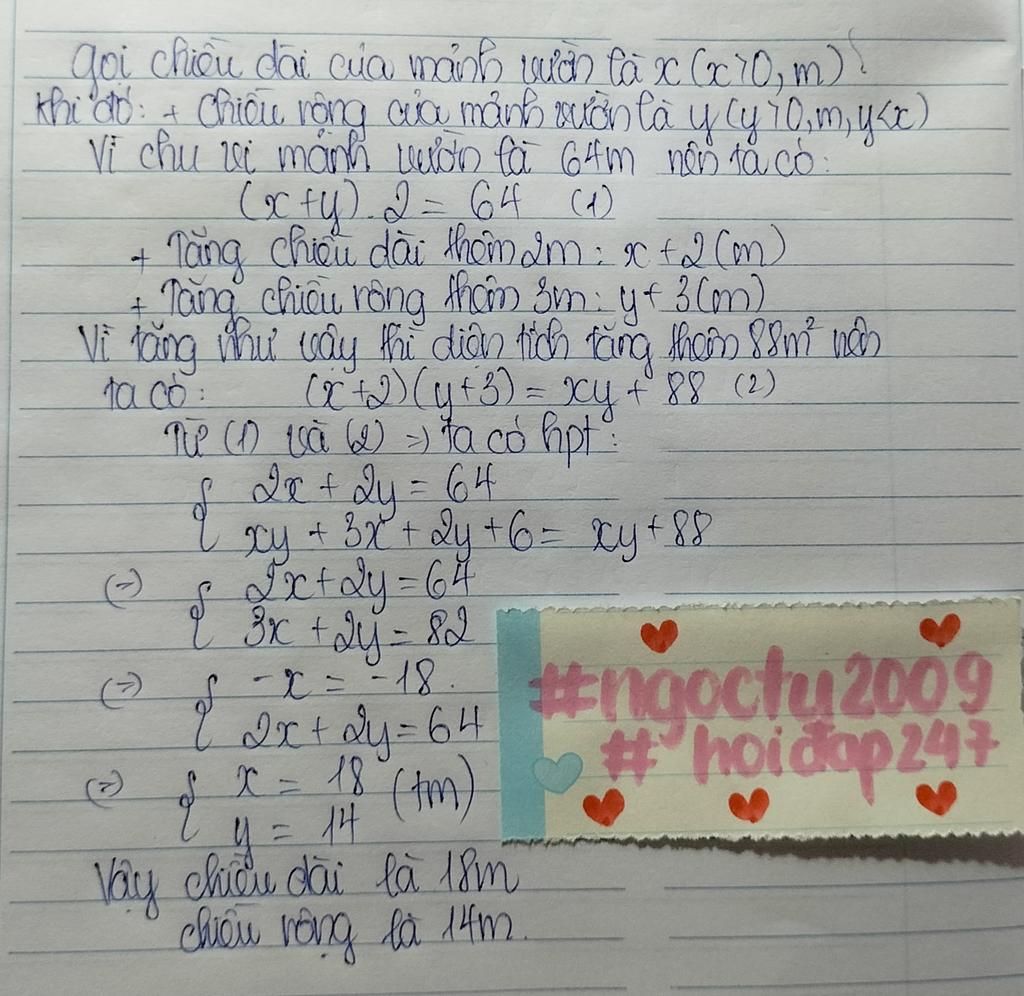 Gọi chiều dài của mảnh vườn là x (x>0, m)
Khi đó: + chiều rộng của mảnh vườn là y (y>0, m, y<x)
Vì chu vi mảnh vườn là 64m nên ta có:
(x+y).2 = 64 (1)
+ Tăng chiều dài thêm 2m: x+2(m)
+ Tăng chiều rộng thêm 3m: y+3(m)
Vì tăng như vậy thì diện tích tăng thêm 88m² nên
ta có: (x+2)(y+3) = xy + 88 (2)
Từ (1) và (2) => ta có hpt:
{ 2x + 2y = 64
xy + 3x + 2y + 6 = xy + 88
(=) { 2x + 2y = 64
3x + 2y = 82
(=) { -x = -18.
2x + 2y = 64
(=) { x = 18 (tm)
y = 14
Vậy chiều dài là 18m
chiều rộng là 14m.
#ngoctu2009
# hoiđap247